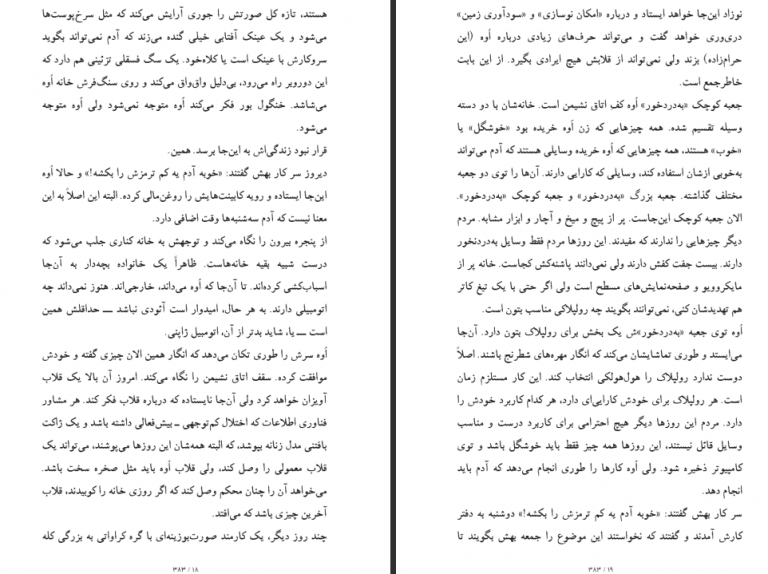 هستند، تازه کل صورتش را جوری آرایش می‌کند که مثل سرخ‌پوست‌ها
می‌شود و یک عینک آفتابی خیلی گنده می‌زند که آدم نمی‌تواند بگوید
سروکارش با عینک است یا کلاه‌خود. یک سگ فسقلی تزئینی هم دارد که
این دوروبر راه می‌رود، بی‌دلیل واق‌واق می‌کند و روی سنگ‌فرش خانه اُوه
می‌شاشد. خنگول بور فکر می‌کند اُوه متوجه نمی‌شود ولی اُوه متوجه
می‌شود.
قرار نبود زندگی‌اش به این‌جا برسد. همین.
دیروز سر کار بهش گفتند: «خوبه آدم یه کم ترمزش را بکشه!» و حالا اُوه
این‌جا ایستاده و رویه کابینت‌هایش را روغن‌مالی کرده. البته این اصلاً به این
معنا نیست که آدم سه‌شنبه‌ها وقت اضافی دارد.
از پنجره بیرون را نگاه می‌کند و توجهش به خانه کناری جلب می‌شود که
درست شبیه بقیه خانه‌هاست. ظاهراً یک خانواده بچه‌دار به آن‌جا
اسباب‌کشی کرده‌اند. تا آن‌جا که اُوه می‌داند، خارجی‌اند. هنوز نمی‌داند چه
اتومبیلی دارند. به هر حال، امیدوار است آئودی نباشد ـــ حداقلش همین
است ـــ یا، شاید بدتر از آن، اتومبیل ژاپنی.
اُوه سرش را طوری تکان می‌دهد که انگار همین الان چیزی گفته و خودش
موافقت کرده. سقف اتاق نشیمن را نگاه می‌کند. امروز آن بالا یک قلاب
آویزان خواهد کرد ولی آن‌جا نایستاده که درباره قلاب فکر کند. هر مشاور
فناوری اطلاعات که اختلال کم‌توجهی ـ بیش‌فعالی داشته باشد و یک ژاکت
بافتنی مدل زنانه بپوشد، که البته همه‌شان این روزها می‌پوشند، می‌تواند یک
قلاب معمولی را وصل کند، ولی قلاب اُوه باید مثل صخره سخت باشد.
می‌خواهد آن را چنان محکم وصل کند که اگر روزی خانه را کوبیدند، قلاب
آخرین چیزی باشد که می‌افتد.
چند روز دیگر، یک کارمند صورت‌بوزینه‌ای با گره کراواتی به بزرگی کله
۱۸ / ۳۸۳
نوزاد این‌جا خواهد ایستاد و درباره «امکان نوسازی» و «سودآوری زمین»
دری‌وری خواهد گفت و می‌تواند حرف‌های زیادی درباره اُوه (این
حرام‌زاده) بزند ولی نمی‌تواند از قلابش هیچ ایرادی بگیرد. از این بابت
خاطرجمع است.
جعبه کوچک «به‌دردخور» اُوه کفِ اتاق نشیمن است. خانه‌شان با دو دسته
وسیله تقسیم شده. همه چیزهایی که زن اُوه خریده بود «خوشگل» یا
«خوب» هستند، همه چیزهایی که اُوه خریده وسایلی هستند که آدم می‌تواند
به‌خوبی ازشان استفاده کند، وسایلی که کارایی دارند. آن‌ها را توی دو جعبه
مختلف گذاشته. جعبه بزرگ «به‌دردخور» و جعبه کوچک «به‌دردخور».
الان جعبه کوچک این‌جاست. پر از پیچ و میخ و آچار و ابزار مشابه. مردم
دیگر چیزهایی را ندارند که مفیدند. این روزها مردم فقط وسایل به‌دردنخور
دارند. بیست جفت کفش دارند ولی نمی‌دانند پاشنه‌کش کجاست. خانه پر از
مایکروویو و صفحه‌نمایش‌های مسطح است ولی اگر حتی با یک تیغ کاتر
هم تهدیدشان کنی، نمی‌توانند بگویند چه رولپلاکی مناسب بتون است.
اُوه توی جعبه «به‌دردخور»ش یک بخش برای رولپلاک بتون دارد. آن‌جا
می‌ایستد و طوری تماشایشان می‌کند که انگار مهره‌های شطرنج باشند. اصلاً
دوست ندارد رولپلاک را هول‌هولکی انتخاب کند. این کار مستلزم زمان
است. هر رولپلاک برای خودش کارایی‌ای دارد، هر کدام کاربرد خودش را
دارد. مردم این روزها دیگر هیچ احترامی برای کاربرد درست و مناسب
وسایل قائل نیستند، این روزها همه چیز فقط باید خوشگل باشد و توی
کامپیوتر ذخیره شود. ولی اُوه کارها را طوری انجام می‌دهد که آدم باید
انجام دهد.
سر کار بهش گفتند: «خوبه آدم یه کم ترمزش را بکشه!» دوشنبه به دفتر
کارش آمدند و گفتند که نخواستند این موضوع را جمعه بهش بگویند تا
۱۹ / ۳۸۳